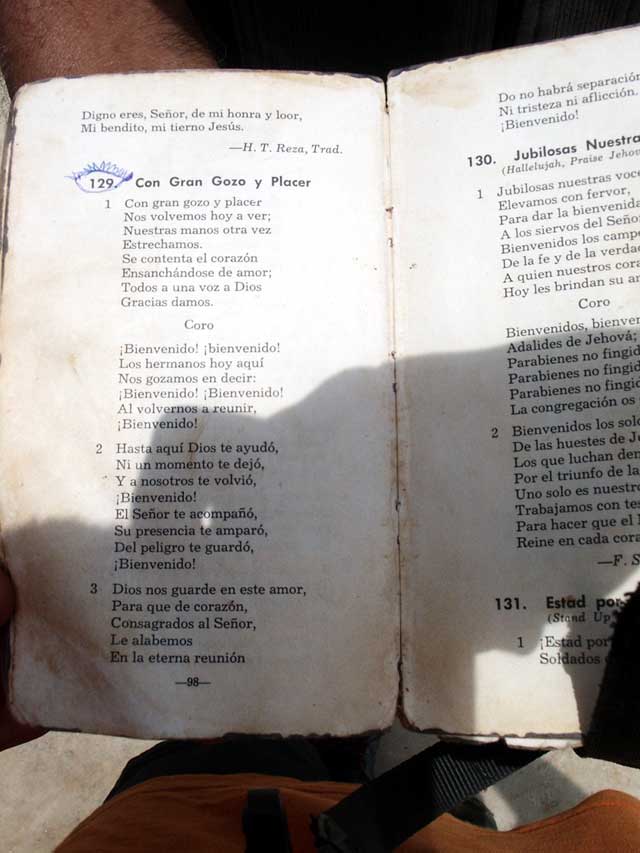 Digno eres, Señor, de mi honra y loor,
Mi bendito, mi tierno Jesús.
—H. T. Reza, Trad.
129. Con Gran Gozo y Placer
1 Con gran gozo y placer
Nos volvemos hoy a ver;
Nuestras manos otra vez
Estrechamos.
Se contenta el corazón
Ensanchándose de amor;
Todos a una voz a Dios
Gracias damos.
Coro
¡Bienvenido! ¡bienvenido!
Los hermanos hoy aquí
Nos gozamos en decir:
¡Bienvenido! ¡Bienvenido!
Al volvernos a reunir,
¡Bienvenido!
2 Hasta aquí Dios te ayudó,
Ni un momento te dejó,
Y a nosotros te volvió,
¡Bienvenido!
El Señor te acompañó,
Su presencia te amparó,
Del peligro te guardó,
¡Bienvenido!
3 Dios nos guarde en este amor,
Para que de corazón,
Consagrados al Señor,
Le alabemos
En la eterna reunión
—98—
Do no habrá separación
Ni tristeza ni aflicción.
¡Bienvenido!
130. Jubilosas Nuestra
(Hallelujah, Praise Jehov
1 Jubilosas nuestras voce
Elevamos con fervor,
Para dar la bienvenida
A los siervos del Señor
Bienvenidos los campe
De la fe y de la verda
A quien nuestros cora
Hoy les brindan su am
Coro
Bienvenidos, bienven
Adalides de Jehová;
Parabienes no fingid
Parabienes no fingid
Parabienes no fingid
La congregación os
2 Bienvenidos los sol
De las huestes de J
Los que luchan den
Por el triunfo de la
Uno solo es nuestro
Trabajamos con tes
Para hacer que el
Reine en cada cora
—F. S
131. Estad por
(Stand Up
1 ¡Estad por
Soldados